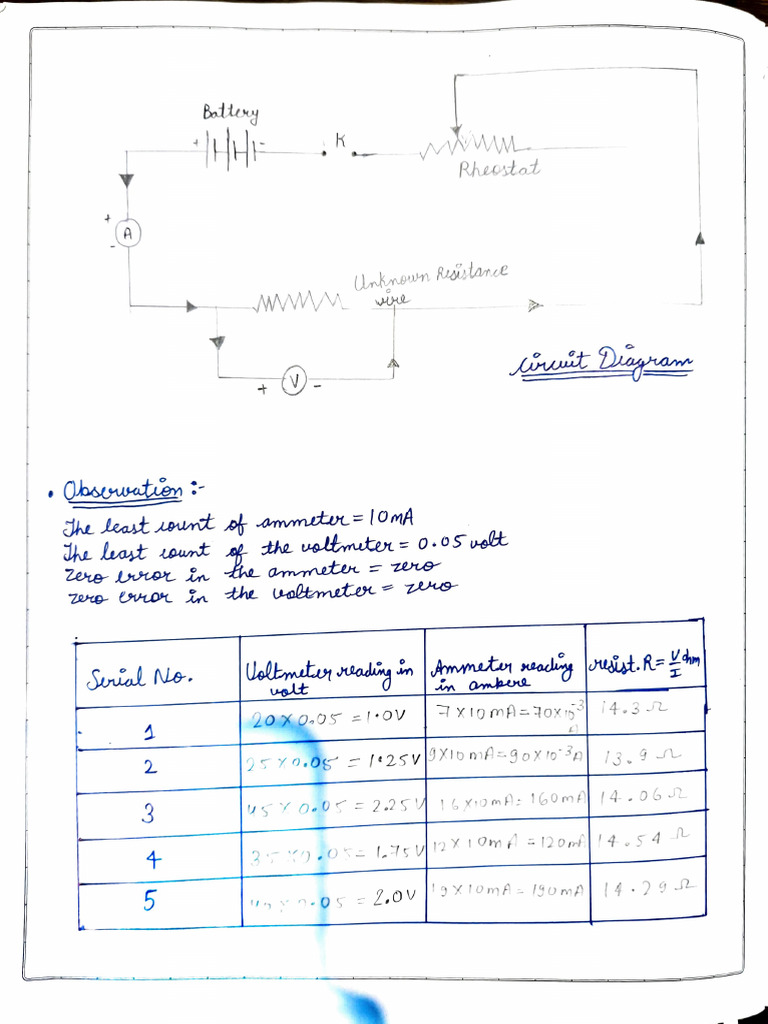 Battery
+ -
K
Rheostat
+
A
-
Unknown Resistance
wire
+ V -
Circuit Diagram
• Observation :-
The least count of ammeter = 10mA
The least count of the voltmeter = 0.05 volt
zero error in the ammeter = zero
zero error in the voltmeter = zero
Serial No. Voltmeter reading in volt Ammeter reading in ambere resist. R = V/I ohm
1 20 × 0.05 = 1.0V 7 × 10mA = 70×10⁻³ A 14.3 Ω
2 25 × 0.05 = 1.25V 9×10mA = 90×10⁻³A 13.9 Ω
3 45 × 0.05 = 2.25V 16×10mA = 160mA 14.06 Ω
4 35 × 0.05 = 1.75V 12 × 10mA = 120mA 14.54 Ω
5 × 0.05 = 2.0V 19 × 10mA = 190mA 14.29 Ω